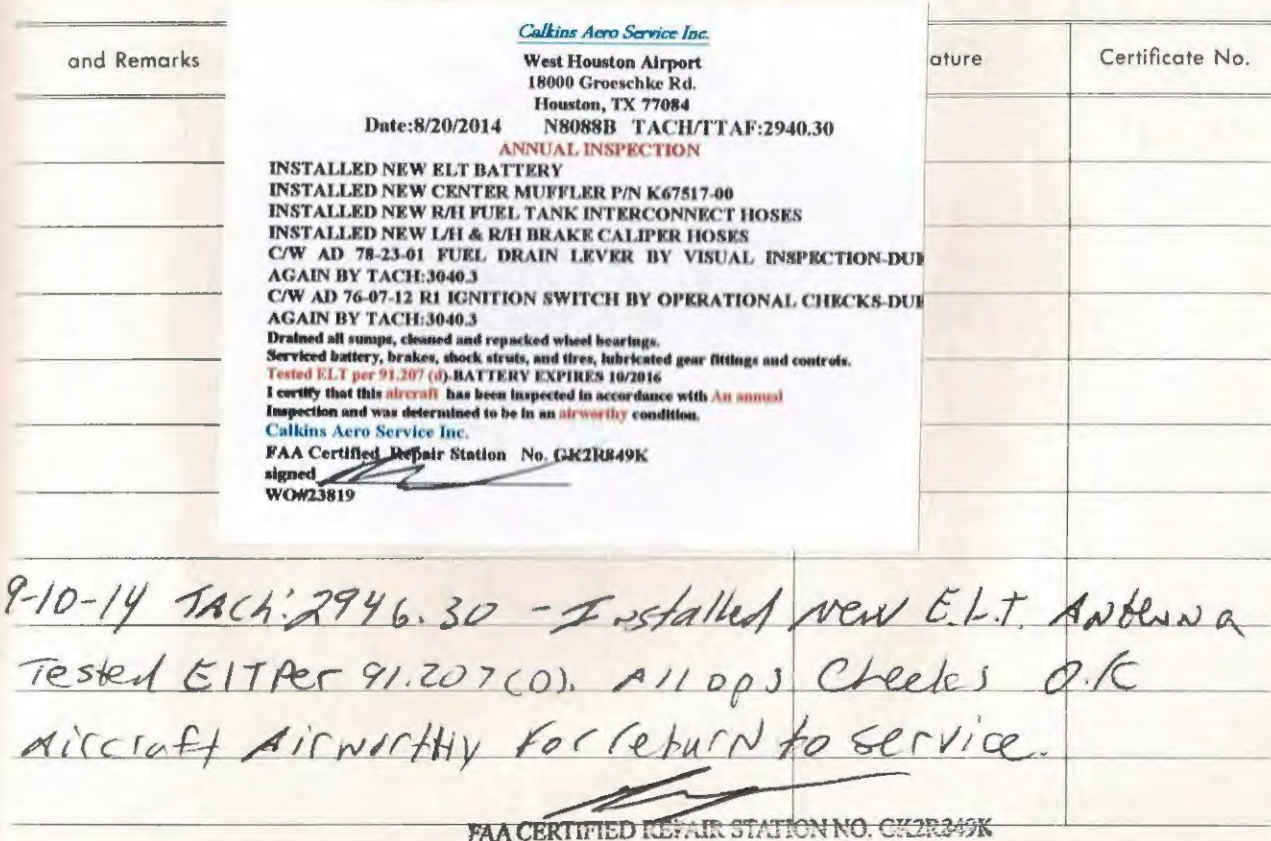 and Remarks
ature
Certificate No.
Calkins Aero Service Inc.
West Houston Airport
18000 Groeschke Rd.
Houston, TX 77084
Date:8/20/2014 N8088B TACH/TTAF:2940.30
ANNUAL INSPECTION
INSTALLED NEW ELT BATTERY
INSTALLED NEW CENTER MUFFLER P/N K67517-00
INSTALLED NEW R/H FUEL TANK INTERCONNECT HOSES
INSTALLED NEW L/H & R/H BRAKE CALIPER HOSES
C/W AD 78-23-01 FUEL DRAIN LEVER BY VISUAL INSPECTION-DUE
AGAIN BY TACH:3040.3
C/W AD 76-07-12 R1 IGNITION SWITCH BY OPERATIONAL CHECKS-DUE
AGAIN BY TACH:3040.3
Drained all sumps, cleaned and repacked wheel bearings.
Serviced battery, brakes, shock struts, and tires, lubricated gear fittings and controls.
Tested ELT per 91.207 (d)-BATTERY EXPIRES 10/2016
I certify that this aircraft has been inspected in accordance with An annual
Inspection and was determined to be in an airworthy condition.
Calkins Aero Service Inc.
FAA Certified Repair Station No. GK2R849K
signed
WO#23819
9-10-14 TACh:2946.30 - Installed new E.L.T. Antenna
Tested ELT Per 91.207(D). All ops Checks O.K
Aircraft Airworthy For return to service.
FAA CERTIFIED REPAIR STATION NO. GK2R849K